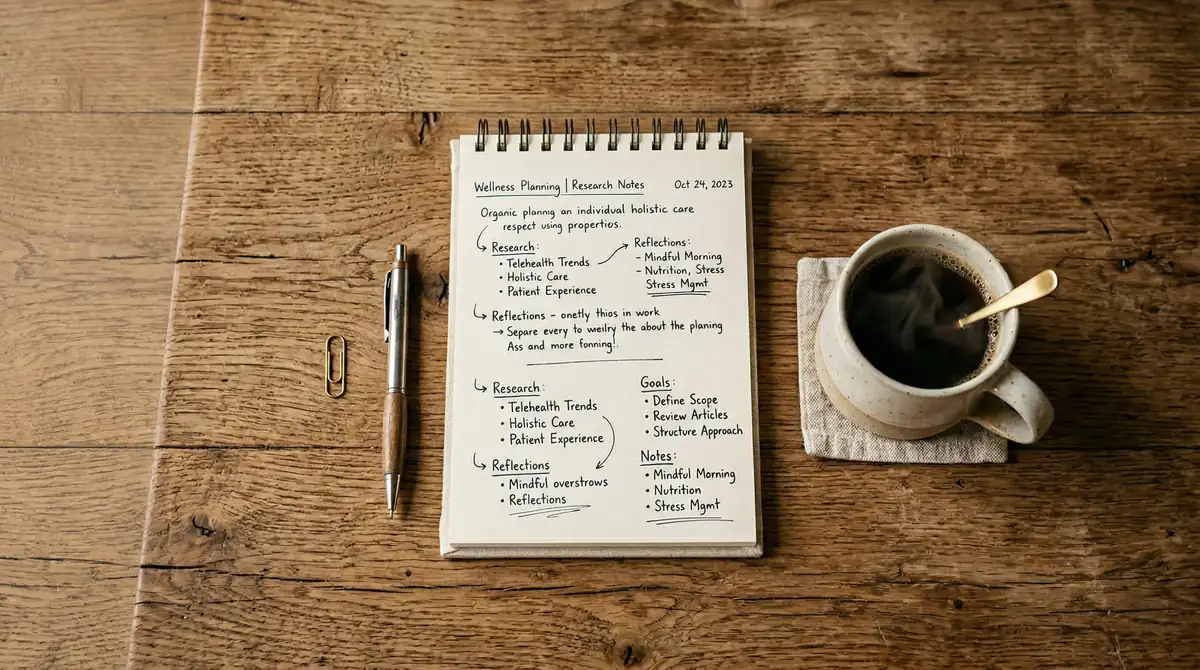 Wellness Planning | Research Notes Oct 24, 2023
Organic plannig an individual holistic care
respect using propertios.
Research:
• Telehealth Trends
• Holistic Care
• Patient Experience
Reflections:
– Mindful Morning
– Nutrition, Stress
Stress Mgmt
Reflections – onetly thios in work
→ Separe every to weilry the about the planing
Ass and more fonning!.
Research:
• Telehealth Trends
• Holistic Care
• Patient Experience
Reflections
• Mindful overstrows
• Reflections
Goals:
• Define Scope
• Review Articles
• Structure Approach
Notes:
• Mindful Morning
• Nutrition
• Stress Mgmt